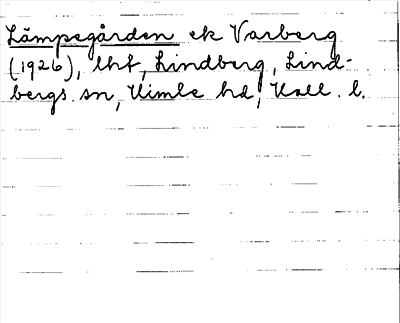 Lämpegården ek Varberg
(1926), lht, Lindberg, Lind-
bergs sn, Himle hd, Hall. l.